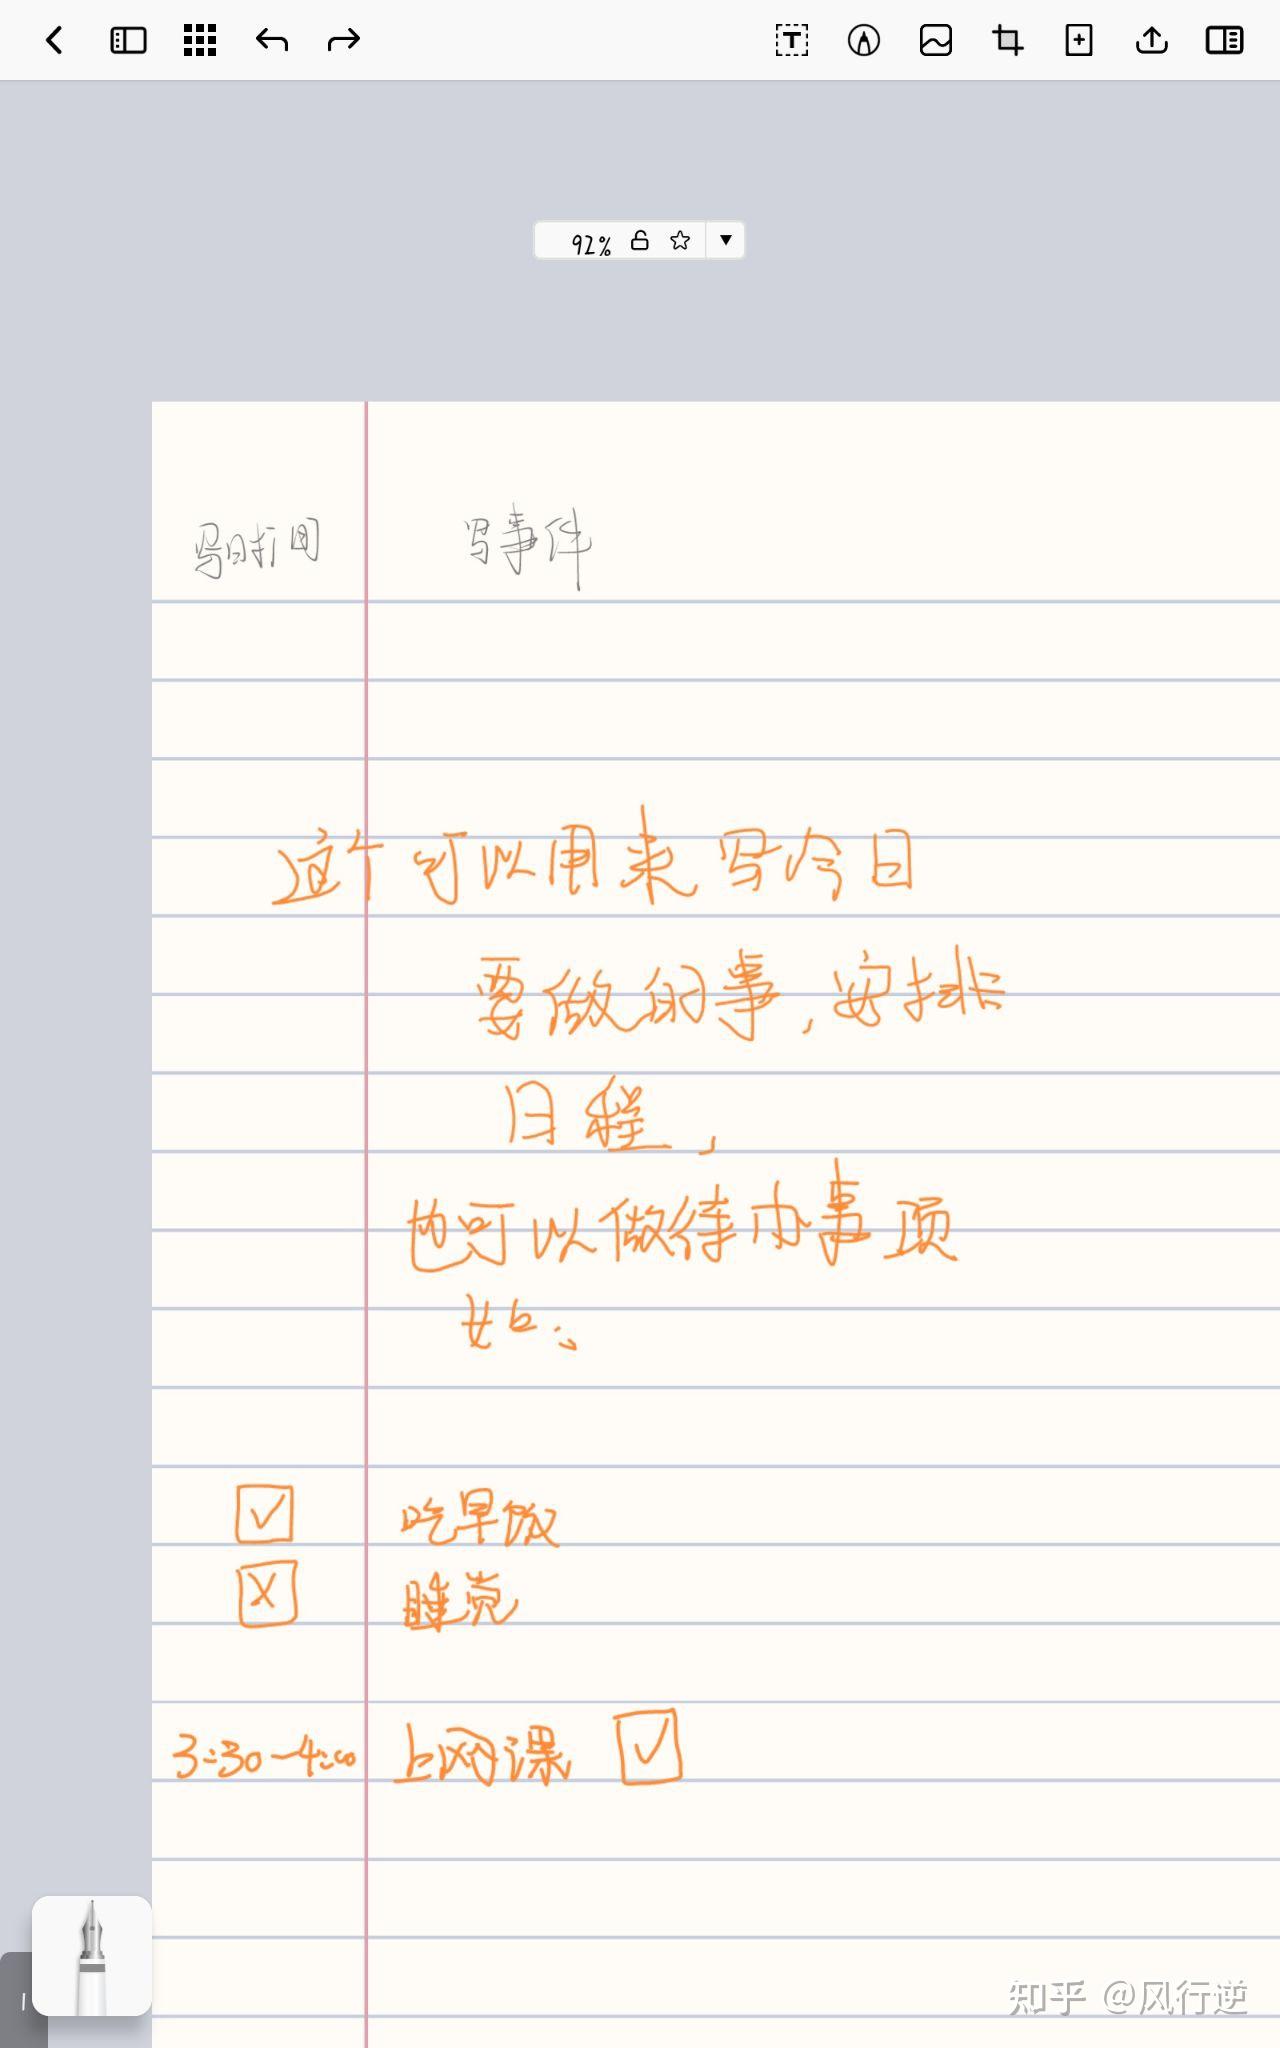 92%
写时间 写事件
这个可以用来写今日
要做的事,安排
日程,
也可以做待办事项
如:
吃早饭
睡觉
3:30-4:00 上网课
知乎 @风行逆